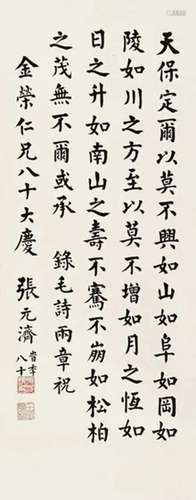 天保定爾以莫不興如山如阜如岡如
陵如川之方至以莫不增如月之恆如
日之升如南山之壽不騫不崩如松柏
之茂無不爾或承 錄毛詩兩章祝
金榮仁兄八十大慶 張元濟
旹秊
八十